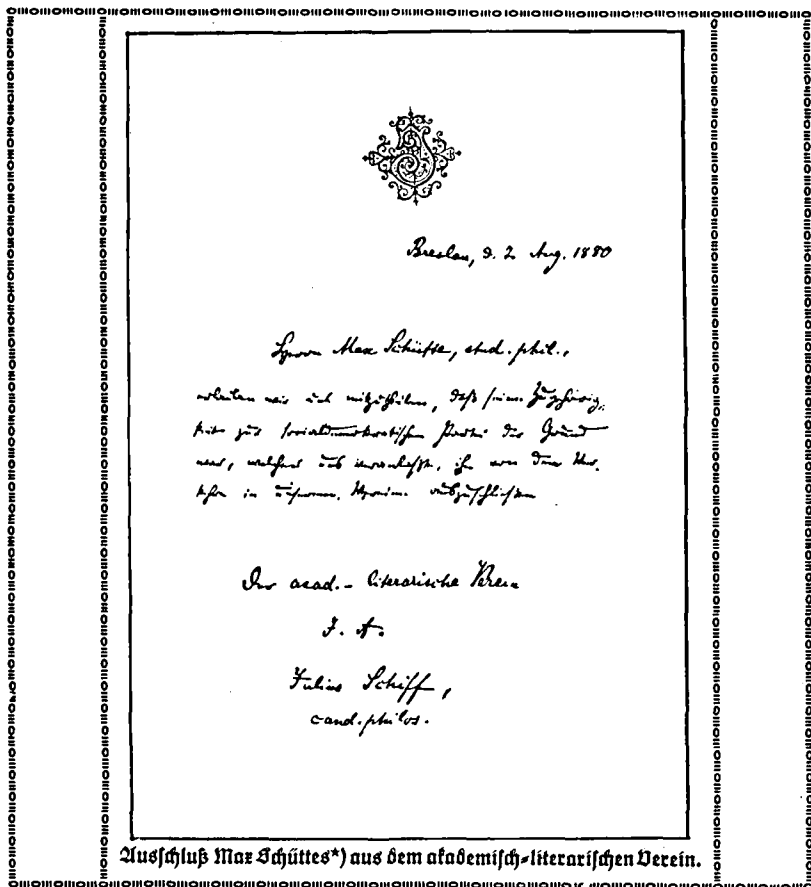 Breslau, d. 2 Aug. 1880
Herrn Max Schütte, stud. phil.,
erlauben wir uns mitzutheilen, daß seine Zugehörig-
keit zur socialdemokratischen Partei der Grund
war, welcher uns veranlaßte, ihn von dem Ver-
kehr in unserem Verein auszuschließen
Der acad.-literarische Verein
J. A.
Julius Schiff,
cand. philos.
Ausschluß Max Schüttes*) aus dem akademisch-literarischen Verein.